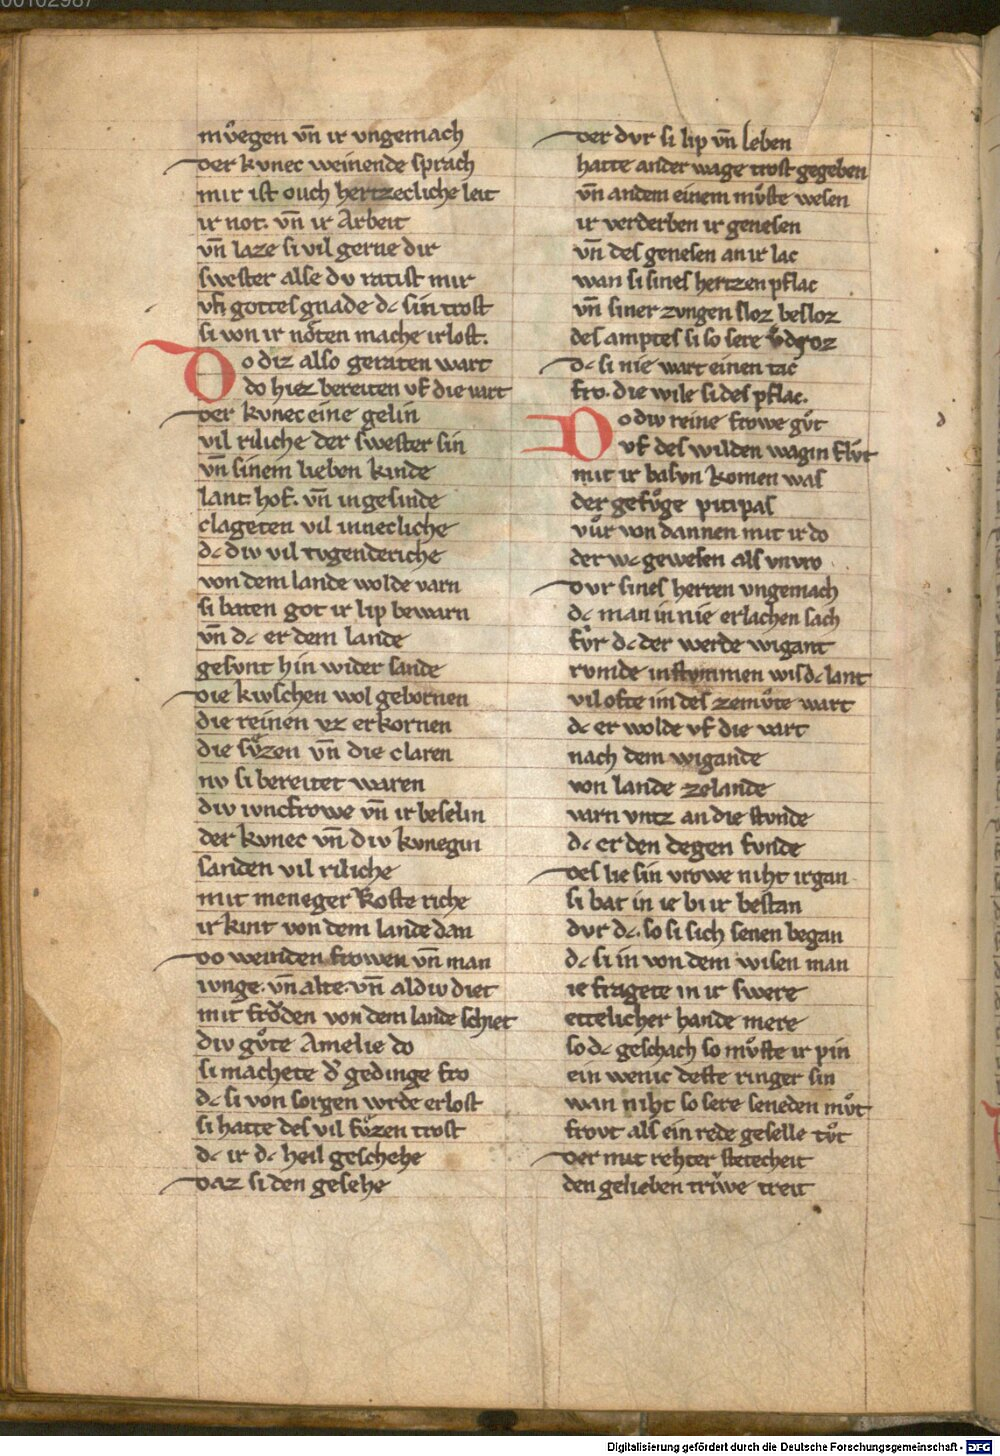 00102987
můegen vn̄ ir vngemach
der kvnec weinende sprach
mir ist ouch hertzecliche leit
ir not. vn̄ ir Arbeit
vn̄ laze si vil gerne dir
swester alse dv ratist mir
vf gottes gnade dc sin trost
si von ir nőten mache irlost.
Do diz also geraten wart
do hiez bereiten vf die vart
der kvnec eine gelin
vil riliche der swester sin
vn̄ sinem lieben kinde
lant. hof. vn̄ ingesinde
clageten vil innecliche
dc div vil tvgenderiche
von dem lande wolde varn
si baten got ir lip bewarn
vn̄ dc er dem lande
gesvnt hin wider sande
die kivschen wol gebornen
die reinen vz erkornen
die sv̊zen vn̄ die claren
nv si bereitet waren
div ivncfrowe vn̄ ir beselin
der kvnec vn̄ div kvnegin
sanden vil riliche
mit meneger koste riche
ir kint von dem lande dan
do weinden frowen vn̄ man
ivnge. vn̄ alte. vn̄ al div diet
mit frőden von dem lande schiet
div gůte Amelie do
si machete d' gedinge fro
dc si von sorgen wrde erlost
si hatte des vil sv̊zen trost
dc ir dc heil geschehe
daz si den gesehe
der dvr si lip vn̄ leben
hatte ander wage trost gegeben
vn̄ an dem einem mv̊ste wesen
ir verderben ir genesen
vn̄ des genesen an ir lac
wan si sines hertzen pflac
vn̄ siner zvngen sloz besloz
des amptes si so sere v̄droz
dc si nie wart einen tac
fro. die wile si des pflac.
Do div reine frowe gv̊t
vf des wilden wagin flv̊t
mit ir basvn komen was
der gefůge pitipas
vůr von dannen mit ir do
der wc gewesen als vnvro
dvr sines herren vngemach
dc man in nie erlachen sach
fv̊r dc der werde wigant
rvmde in stvmmen wis dc lant
vil ofte im des ze mv̊te wart
dc er wolde vf die vart
nach dem wigande
von lande zelande
varn vntz an die stvnde
dc er den degen fvnde
des lie sin vrowe niht irgan
si bat in ie bi ir bestan
dvr dc. so si sich senen began
dc si in von dem wisen man
ie fragete in ir swere
ettelicher hande mere
so dc geschach so mv̊ste ir pin
ein wenic deste ringer sin
wan niht so sere seneden mv̊t
frovt als ein rede geselle tv̊t
der mit rehter stetecheit
den gelieben triwe treit
Digitalisierung gefördert durch die Deutsche Forschungsgemeinschaft - DFG